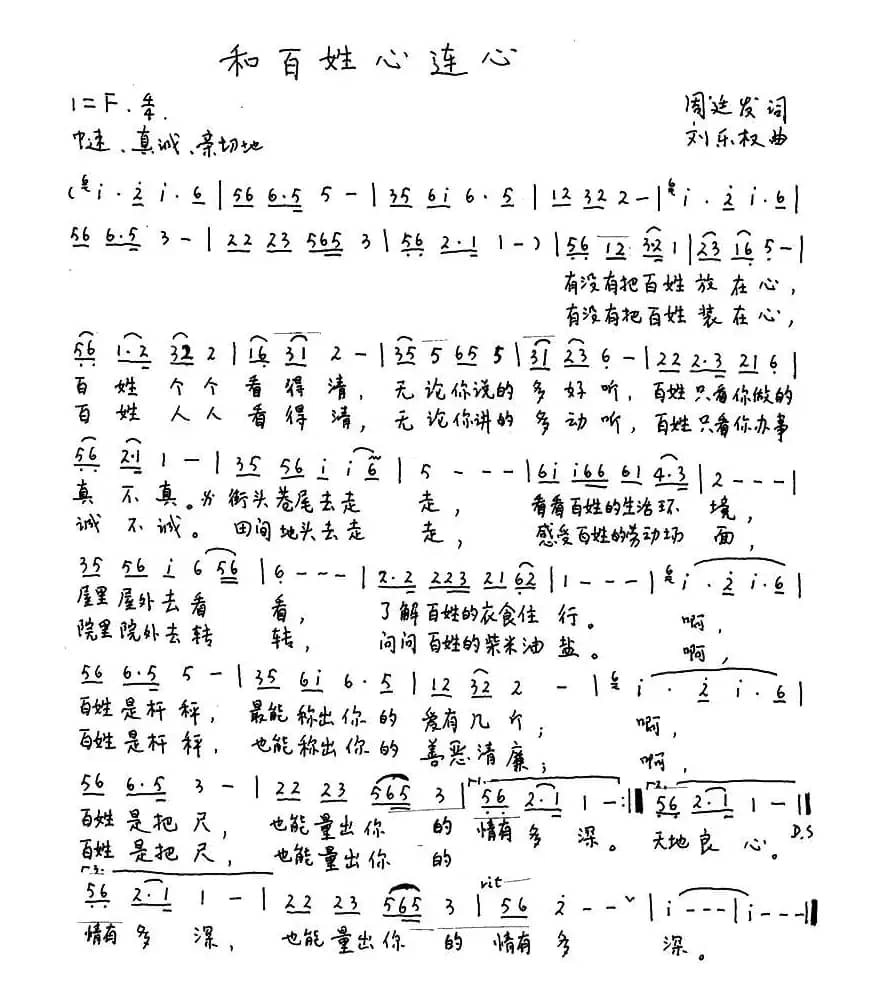 和百姓心连心
1=F 4/4
周廷发 词
中速、真诚、亲切地
刘乐权 曲
(6 i·2 i·6 | 56 6·5 5 - | 35 6i 6·5 | 12 32 2 - | 6 i·2 i·6 |
56 6·5 3 - | 22 23 565 3 | 56 2·1 1 - ) | 56 12 32 1 | 23 16 5 - |
有没有把百姓放在心，
有没有把百姓装在心，
56 1·2 32 2 | 16 31 2 - | 35 5 65 5 | 31 23 6 - | 22 2·3 21 6 |
百姓个个看得清，无论你说的多好听，百姓只看你做的
百姓人人看得清，无论你讲的多动听，百姓只看你办事
56 2·1 1 - | 35 56 i i6 | 5 - - - | 6i i66 61 4·3 | 2 - - - |
真不真。街头巷尾去走走，看看百姓的生活环境，
诚不诚。田间地头去走走，感受百姓的劳动场面，
35 56 i 6 56 | 6 - - - | 2·2 223 21 62 | 1 - - - | 6 i·2 i·6 |
屋里屋外去看看，了解百姓的衣食住行。啊，
院里院外去转转，问问百姓的柴米油盐。啊，
56 6·5 5 - | 35 6i 6·5 | 12 32 2 - | 6 i·2 i·6 |
百姓是杆秤，最能称出你的爱有几个；啊，
百姓是杆秤，也能称出你的善恶清廉；啊，
56 6·5 3 - | 22 23 565 3 | 1. 56 2·1 1 - :| 2. 56 2·1 1 - ||
百姓是把尺，也能量出你的情有多深。天地良心。 D.S
百姓是把尺，也能量出你的
3.
rit
56 2·1 1 - | 22 23 565 3 | 56 2 - - | i - - - | i - - - ||
情有多深，也能量出你的情有多深。